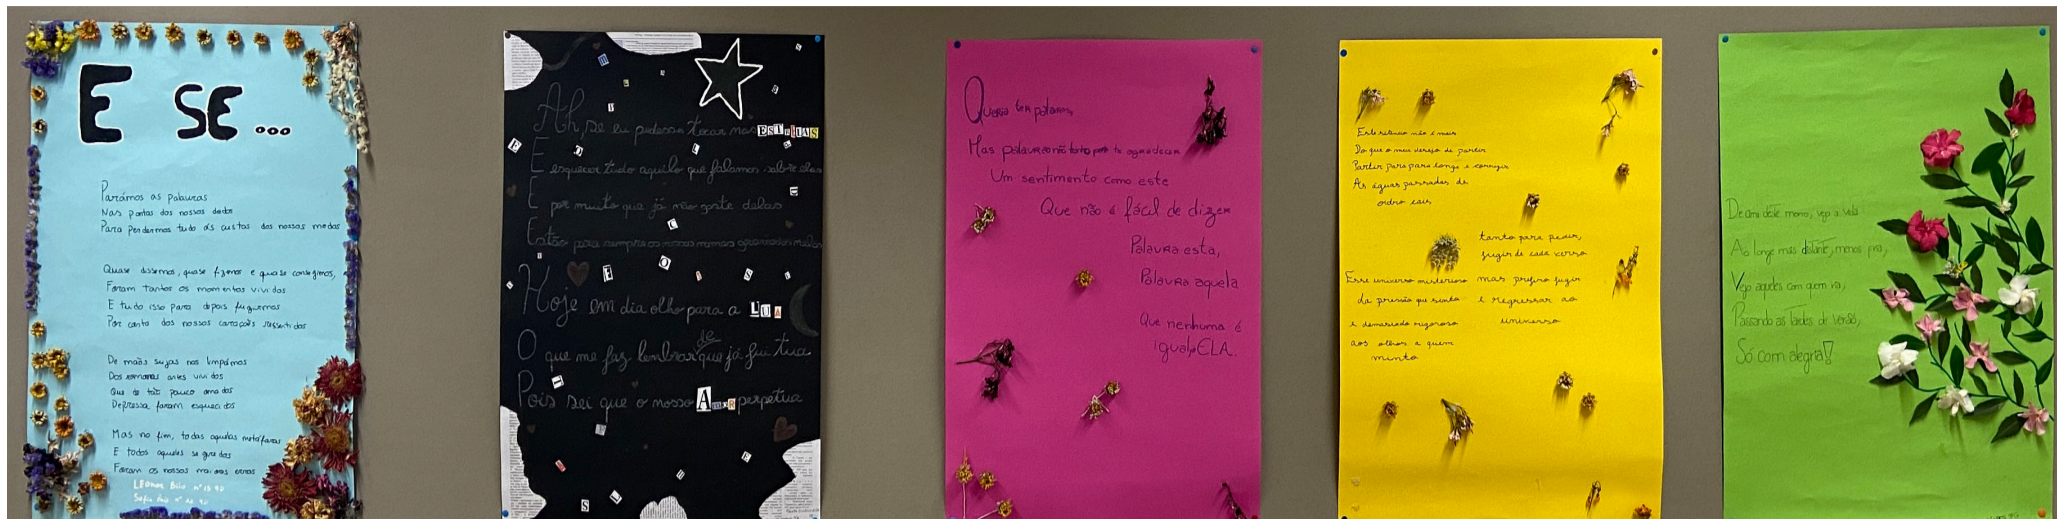 E SE...
Parámos as palavras
Nas pontas dos nossos dedos
Para perdermos tudo ás custas dos nossos medos
Quase dissemos, quase fizemos e quase conseguimos,
Foram tantos os momentos vividos
E tudo isso para depois fugirmos
Por conta dos nossos corações ressentidos
De mãos sujas nos limpámos
Dos romances antes vividos
Que de tão pouco amados
Depressa foram esquecidos
Mas no fim, todas aquelas metáforas
E todos aqueles segredos
Foram os nossos maiores erros
Ah, se eu pudesse tocar nas ESTRELAS
E esquecer tudo aquilo que falamos sobre elas
E por muito que já não goste delas
Estão para sempre os nossos nomes gravados nelas
Hoje em dia olho para a LUA
O que me faz lembrar de que já fui tua
Pois sei que o nosso AmoR perpetua
Queria ter palavras,
Mas palavras não te agradecer
Um sentimento como este
Que não é fácil de dizer
Palavra esta,
Palavra aquela
Que nenhuma é
igual ELA.
Este não é mais
Do que o meu desejo de partir
Partir para longe e corrigir
As águas passadas de
outro cais
tanto para pedir,
fugir de cada verso
Esse universo misterioso mas prefiro fugir
da pressão que sinto e regressar ao
é demasiado rigoroso universo
aos olhos a quem
minto
morro, vejo a vela
Ao longe mas distante, menos pra,
Vejo aqueles com quem ria,
Passando as tardes de verão,
Só com alegria!